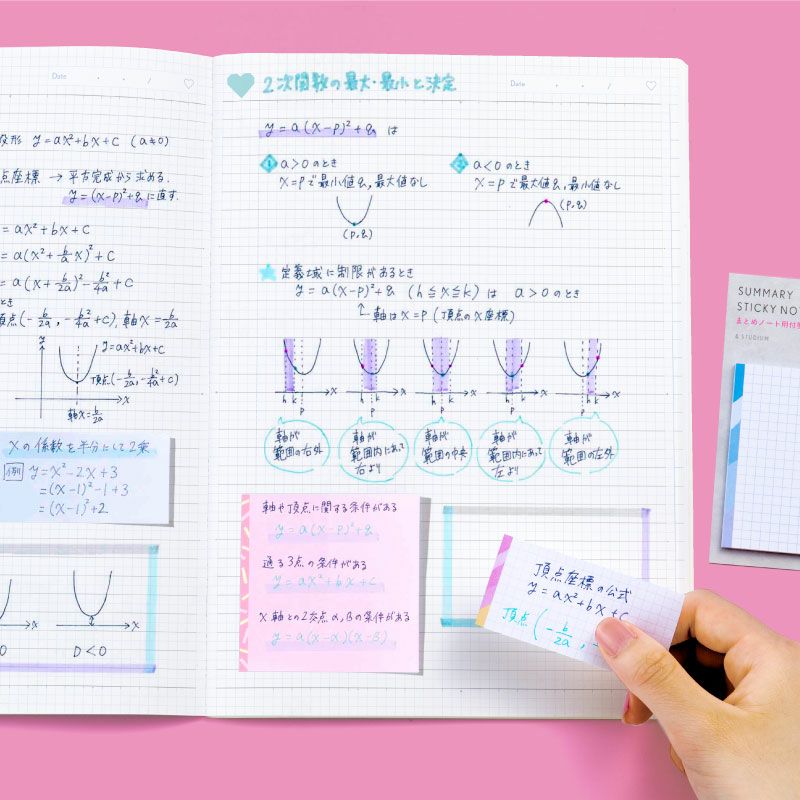 Date
形 y=ax²+bx+c (a≠0)
点座標 → 平方完成から求める.
y=(x-p)²+qに直す.
= ax²+bx+c
= a(x²+b/a x)²+c
= a(x+b/2a)²-b²/4a+c
とき
頂点(-b/2a, -b²/4a+c), 軸x=b/2a
y
y=ax²+bx+c
頂点(-b/2a, -b²/4a+c)
x
軸x=b/2a
xの係数を半分にして2乗
例 y=x²-2x+3
=(x-1)²-1+3
=(x-1)²+2
x
x
0
D<0
Date
2次関数の最大・最小と決定
y=a(x-p)²+q は
1 a>0のとき
x=pで最小値q, 最大値なし
(p,q)
2 a<0のとき
x=pで最大値q, 最小値なし
(p,q)
定義域に制限があるとき
y=a(x-p)²+q (h≦x≦k) は a>0のとき
↑軸はx=p (頂点のx座標)
h k p x
h k p x
h k p x
h k p x
p h k x
軸が範囲の右外
軸が範囲内にあって右より
軸が範囲の中央
軸が範囲内にあって左より
軸が範囲の左外
軸や頂点に関する条件がある
y=a(x-p)²+q
通る3点の条件がある
y=ax²+bx+c
x軸との2交点α,βの条件がある
y=a(x-α)(x-β)
頂点座標の公式
y=ax²+bx+c
頂点(-b/2a, -
SUMMARY
STICKY NO
まとめノート用付
& STUDIUM